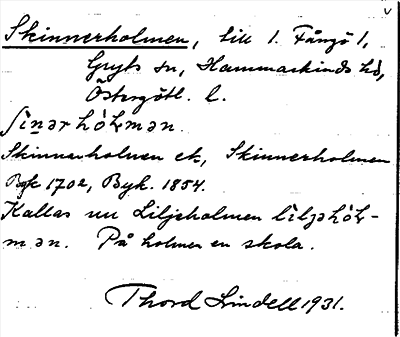 Skinnerholmen, till 1. Fångö 1,
Gryts sn, Hammarkinds hd,
Östergötl. l.
ʃinər hól̀mən.
Skinnerholmen ek, Skinnerholmen
Bgk 1702, Byk. 1854.
Kallas nu Liljeholmen lìljəhól-
mən. På holmen en skola.
Thord Lindell 1931.